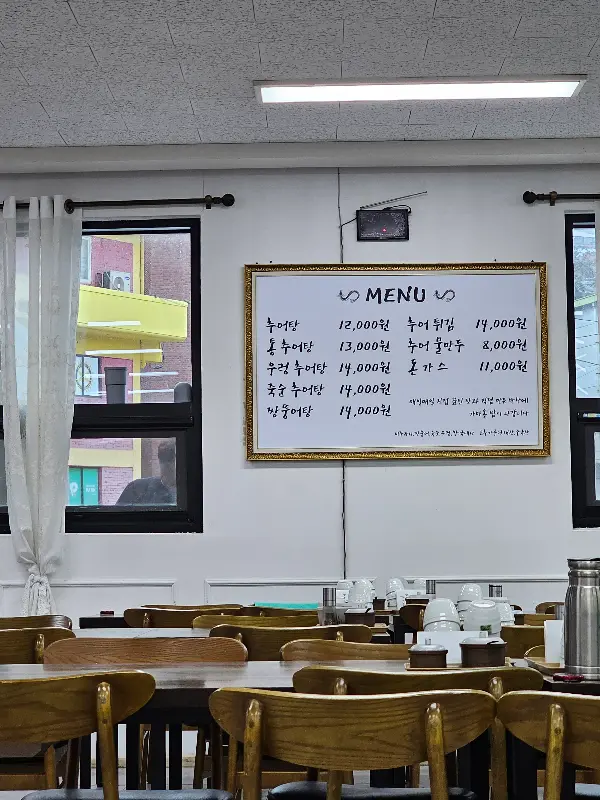 MENU
추어탕 12,000원
통 추어탕 13,000원
우렁 추어탕 14,000원
죽순 추어탕 14,000원
짱뚱어탕 14,000원
추어 튀김 14,000원
추어 물만두 8,000원
돈가스 11,000원